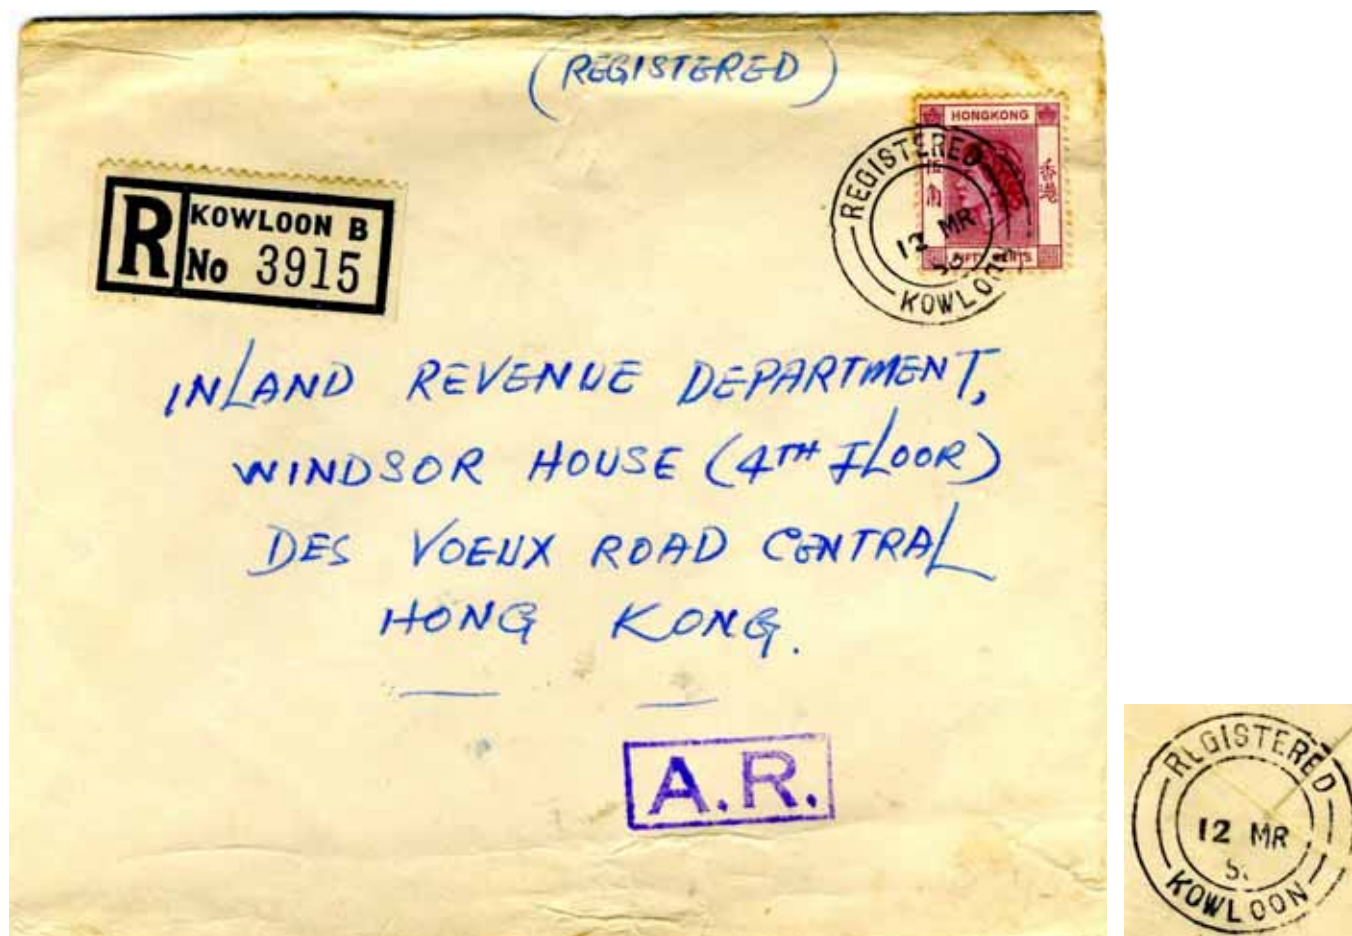 (REGISTERED)
HONGKONG
香港
FIFTY CENTS
REGISTERED
12 MR
KOWLOON
R KOWLOON B
No 3915
INLAND REVENUE DEPARTMENT,
WINDSOR HOUSE (4TH FLOOR)
DES VOEUX ROAD CENTRAL
HONG KONG.
A.R.
REGISTERED
12 MR
KOWLOON